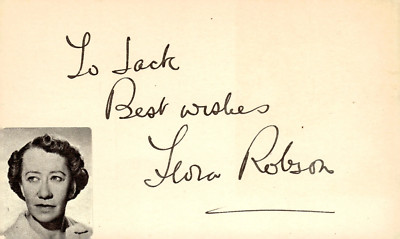 To Jack
Best wishes
Flora Robson